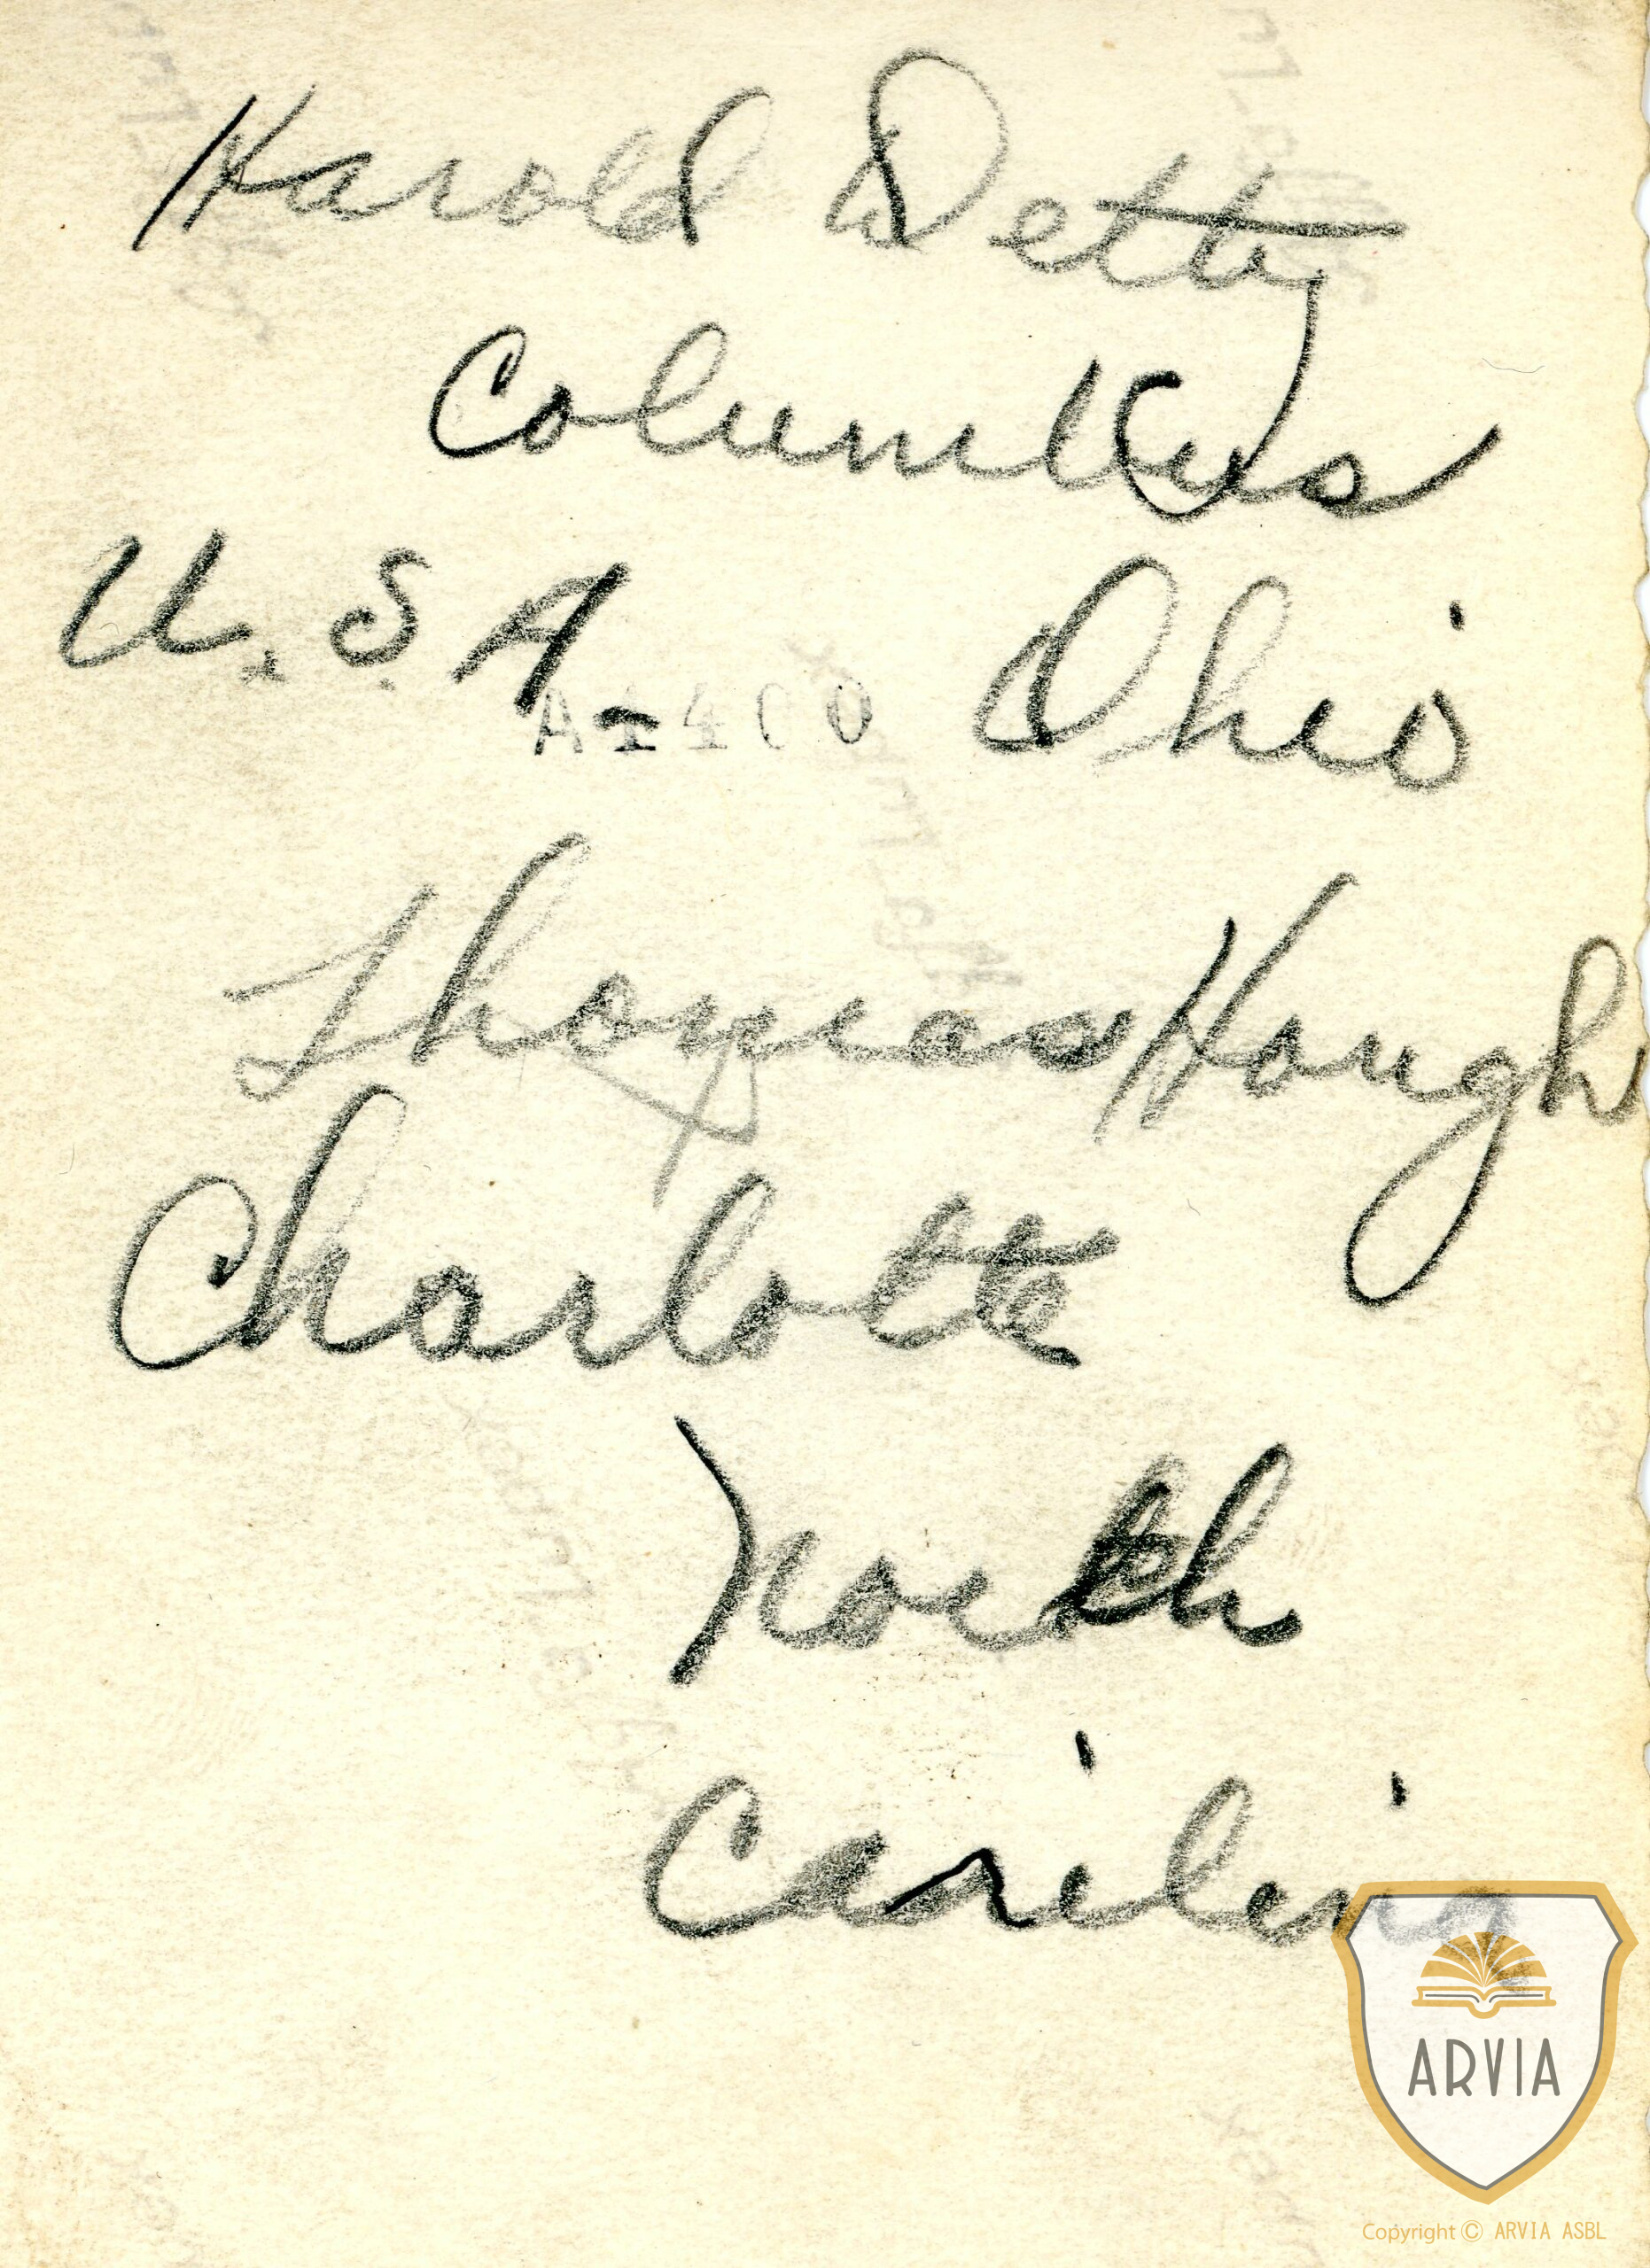 Harold Detty
Columbus
U.S.A Ohio
Thomas Hough
Charlotte
North
Carilina
ARVIA
Copyright © ARVIA ASBL